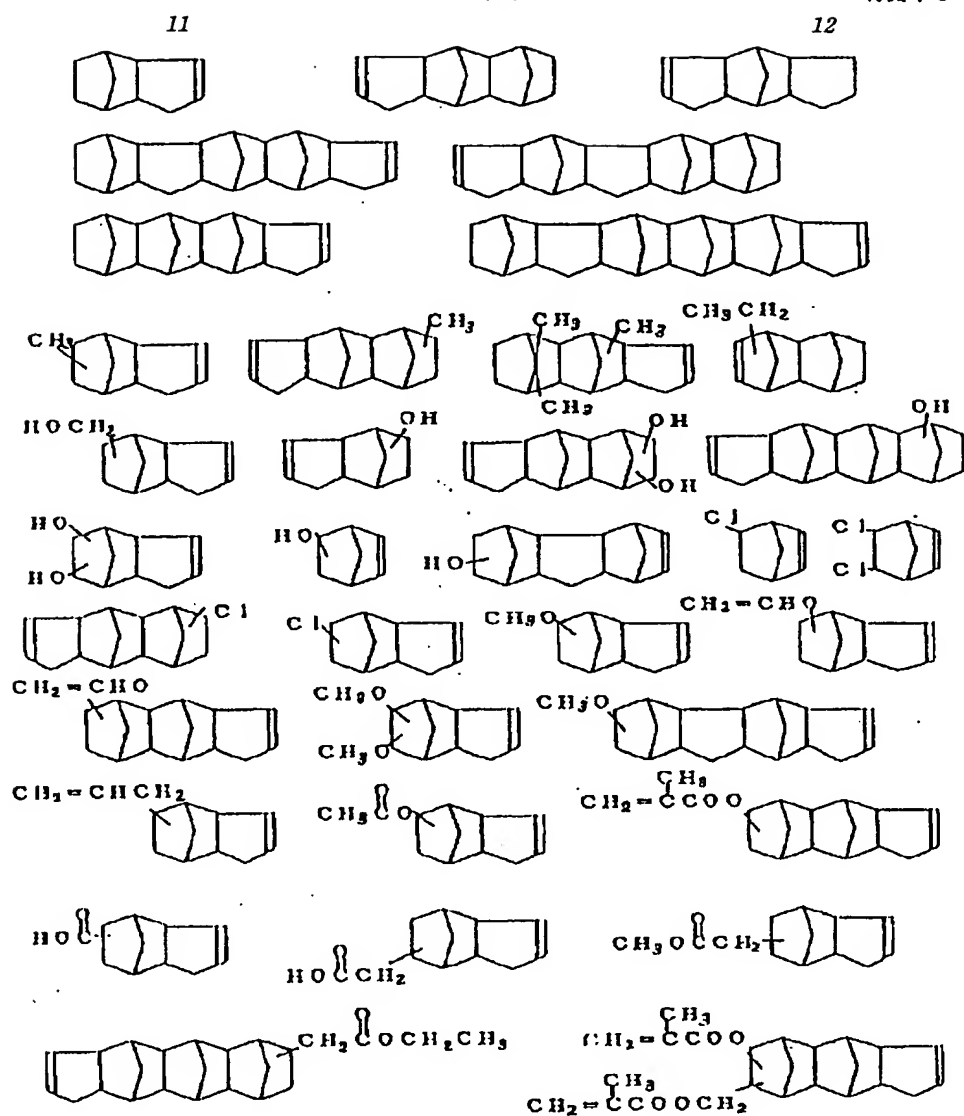 11 12
CH₃ CH₃ CH₃ CH₃ CH₃CH₂
CH₃
HOCH₂ OH OH OH
OH
HO HO HO Cl Cl
HO Cl
Cl Cl CH₃O CH₂=CHO
CH₂=CHO CH₃O CH₃O
CH₃O
CH₂=CHCH₂ O CH₃CO CH₃ CH₂=CCOO
O HOC O HOCCH₂ O CH₃OCCH₂
O CH₂COCH₂CH₃ CH₃ CH₂=CCOO
CH₃ CH₂=CCOOCH₂